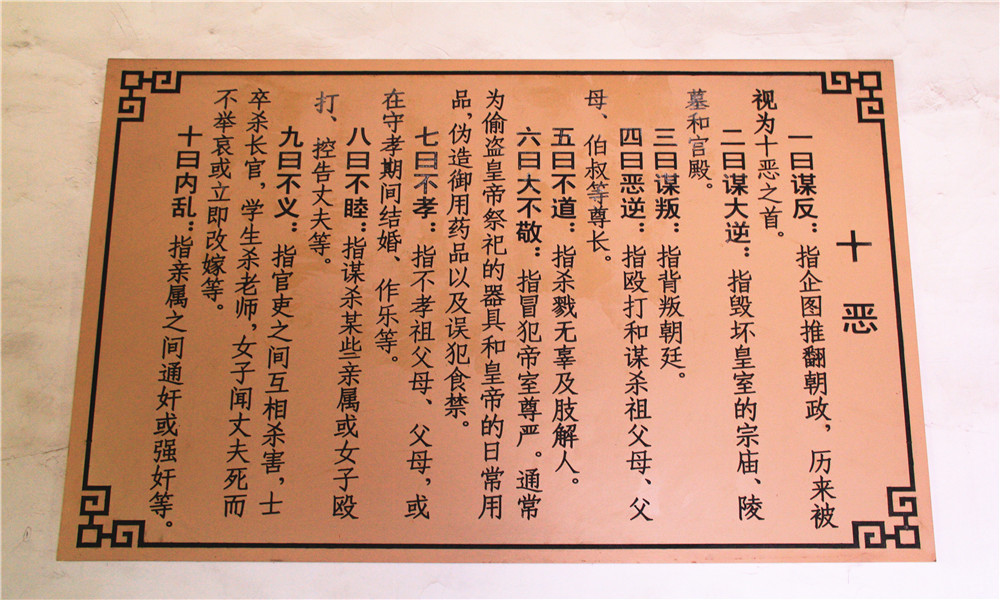 十恶
一曰谋反：指企图推翻朝政，历来被
视为十恶之首。
二曰谋大逆：指毁坏皇室的宗庙、陵
墓和宫殿。
三曰谋叛：指背叛朝廷。
四曰恶逆：指殴打和谋杀祖父母、父
母、伯叔等尊长。
五曰不道：指杀戮无辜及肢解人。
六曰大不敬：指冒犯帝室尊严。通常
为偷盗皇帝祭祀的器具和皇帝的日常用
品，伪造御用药品以及误犯食禁。
七曰不孝：指不孝祖父母、父母，或
在守孝期间结婚、作乐等。
八曰不睦：指谋杀某些亲属或女子殴
打、控告丈夫等。
九曰不义：指官吏之间互相杀害，士
卒杀长官，学生杀老师，女子闻丈夫死而
不举哀或立即改嫁等。
十曰内乱：指亲属之间通奸或强奸等。